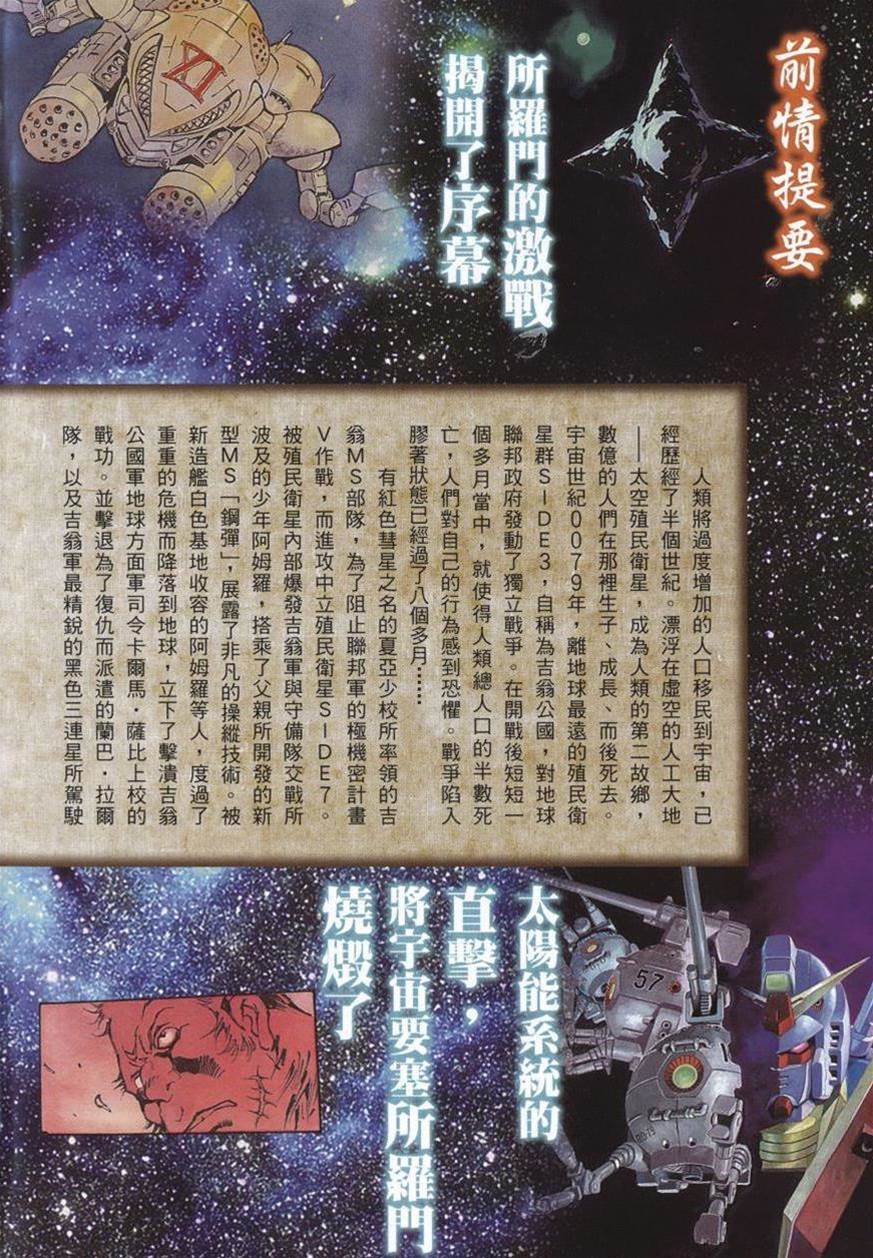 前情提要
所羅門的激戰
揭開了序幕
人類將過度增加的人口移民到宇宙，已
經歷經了半個世紀。漂浮在虛空的人工大地
——太空殖民衛星，成為人類的第二故鄉，
數億的人們在那裡生子、成長、而後死去。
宇宙世紀0079年，離地球最遠的殖民衛
星群SIDE3，自稱為吉翁公國，對地球
聯邦政府發動了獨立戰爭。在開戰後短短一
個多月當中，就使得人類總人口的半數死
亡，人們對自己的行為感到恐懼。戰爭陷入
膠著狀態已經過了八個多月……
有紅色彗星之名的夏亞少校所率領的吉
翁MS部隊，為了阻止聯邦軍的極機密計畫
V作戰，而進攻中立殖民衛星SIDE7。
被殖民衛星內部爆發吉翁軍與守備隊交戰所
波及的少年阿姆羅，搭乘了父親所開發的新
型MS「鋼彈」，展露了非凡的操縱技術。被
新造艦白色基地收容的阿姆羅等人，度過了
重重的危機而降落到地球，立下了擊潰吉翁
公國軍地球方面軍司令卡爾馬·薩比上校的
戰功。並擊退為了復仇而派遣的蘭巴·拉爾
隊，以及吉翁軍最精銳的黑色三連星所駕駛
太陽能系統的
直擊，
將宇宙要塞所羅門
燒燬了
XI
57